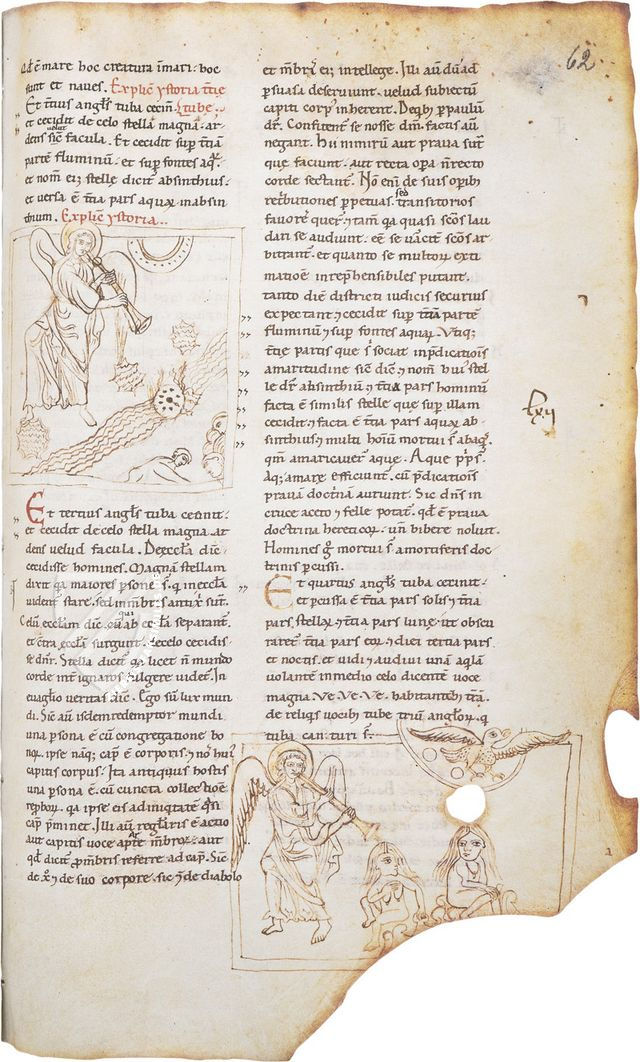 62
Qd ē mare hoc creatura ī mari· hoc
sunt et naves. Explic̄ ystoria tc̄ie
Et t̄cius angls̄ tuba cecin̄. tube·
et cecidit de celo stella magna· ar
dens sic̄ facula. Et cecidit sup̄ t̄ciā
partē fluminū· et sup̄ fontes aq̄·
et nom̄ ei; stelle dicit̄ absinthius·
et versa ē t̄cia pars aquaꝝ in absin
thium. Explic̄ ystoria..
Et tertius angls̄ tuba cecinit·
et cecidit de celo stella magna· ar
dens velud facula. De eccl̄a dic̄
cecidisse homines. Magnā stellam
dixit q̄a maiores p̄sone s̄· q̄ in eccl̄a
vident̄ stare· sed in mēbris antixp̄i sunt.
Celū eccl̄am dic̄· q̄a ab eccl̄a separant̄
qui
et c̄tra eccl̄am surgunt· de celo cecidis
se dn̄r. Stella dicit̄ q̄a licet n̄ mundo
corde int̄ ignaros fulgere videt̄. In
evāglio veritas dic̄· Ego sū lux mun
di. Sic aū isdem redemptor mundi
una p̄sona ē cū congregatione bo
noꝝ. ipse naq; cap̄ ē corporis· ⁊ nos hui᷒
capitis corpus· Ita antiquus hostis
una p̄sona ē· cū cuncta collectiōe
reproboꝝ· q̄a ipse eis ad iniquitatē q̄si
cap̄ p̄minet. Illi aū
aut capitis voce apte mēbroꝝ· aut
qd̄ dicit̄ p̄ mēbris referre ad cap̄. Sic̄
de xp̄o ⁊ de suo corpore· sic ⁊ de diabolo
et mēbris ei; intellege. Illi aū dū ad
p̄suasa deserviunt· velud subiectū
capiti corp᷒ inherent. De quib; p̄ paulū
dr̄. Confitent̄ se nosse dm̄· factis aū
negant. Hii nimirū aut prava sūt
que faciunt· aut recta op̄a n̄ recto
corde sectant̄. Nō eni᷒ de suis op̄ib;
retributiones p̄petuas· sed transitorios
favores querūt· ⁊ tam̄ q̄a quasi sc̄os lau
dari se audiunt· eē se vac̄it̄ sc̄os ar
bitrant̄· et quanto se multoꝝ exti
matiōe inrep̄hensibiles putant·
tanto diē districti iudicis securius
expectant ⁊ cecidit sup̄ t̄ciā partē
fluminū ⁊ sup̄ fontes aquaꝝ· Utiq;
t̄cie partis que s̄ sociat̄ in p̄dicatiōis
amaritudine sic̄ dic̄ ⁊ nom̄ hui᷒ stel
le dr̄· absinthiū ⁊ t̄cia pars hominū
facta ē similis stelle que sup̄ illam
cecidit· ⁊ facta ē t̄cia pars aquaꝝ ab
sinthius ⁊ multi hom̄ū mortui s̄ ab aq̄·
qm̄ amaricaver̄ aque· Aque p̄p̄s·
Aq; amare efficiunt̄· cū p̄dicatiōis
pravā doct̄nā auriunt. Sic dn̄s in
cruce aceto ⁊ felle potat̄· qd̄ ē prava
doctrina hereticoꝝ· un̄ bibere noluit.
Homines ḡ mortui s̄· a mortiferis doc
trinis p̄cussi.
Et quartus angls̄ tuba cecinit·
et p̄cussa ē t̄cia pars solis ⁊ t̄cia
pars stellaꝝ· ⁊ t̄cia pars lune· ut obscu
raret̄ t̄cia pars eoꝝ ⁊ diei tertia pars·
et noctis· et vidi ⁊ audivi unā aq̄lā
volantē in medio celo dicente voce
magna· Ve· Ve· Ve· habitantib; t̄rā·
de reliq̄s vocib; tube triū angloꝝ· q̄
tuba canituri s̄·
lxij